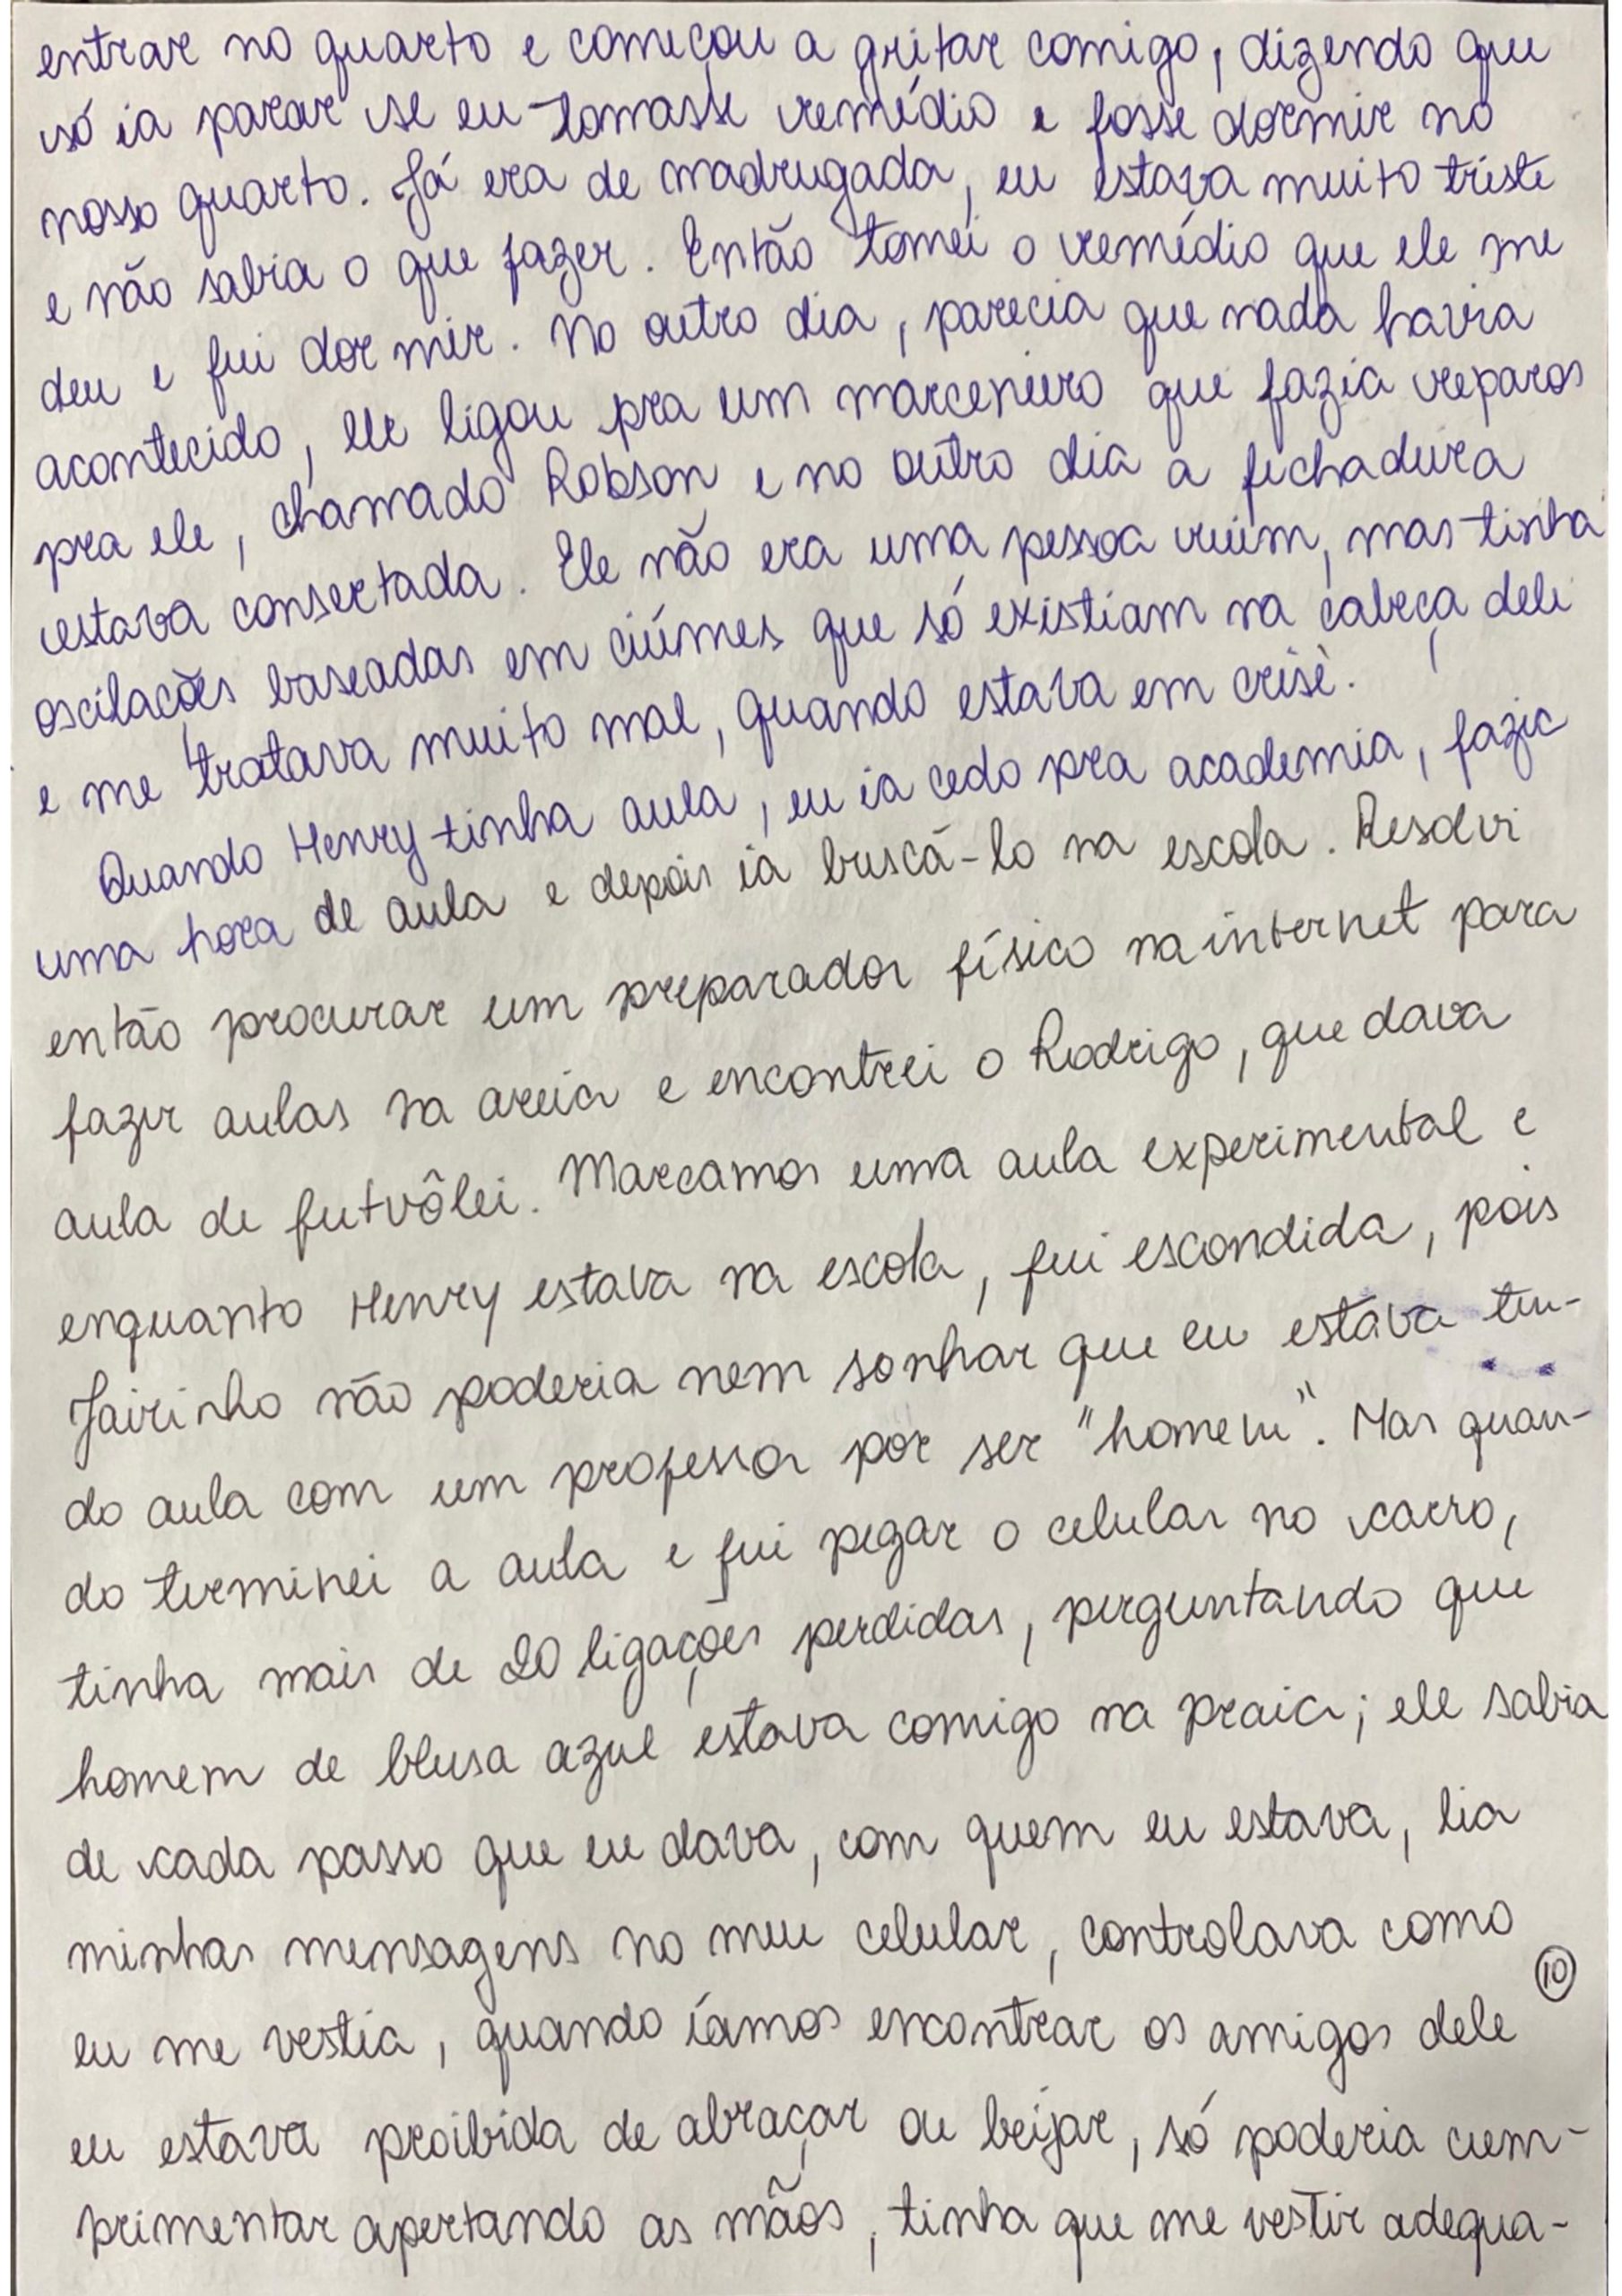 entrar no quarto e começou a gritar comigo, dizendo que
só ia parar se eu tomasse remédio e fosse dormir no
nosso quarto. Já era de madrugada, eu estava muito triste
e não sabia o que fazer. Então tomei o remédio que ele me
deu e fui dormir. No outro dia, parecia que nada havia
acontecido, ele ligou pra um marceneiro que fazia reparos
pra ele, chamado Robson e no outro dia a fechadura
estava consertada. Ele não era uma pessoa ruim, mas tinha
oscilações baseadas em ciúmes que só existiam na cabeça dele
e me tratava muito mal, quando estava em crise.
Quando Henry tinha aula, eu ia cedo pra academia, fazia
uma hora de aula e depois ia buscá-lo na escola. Resolvi
então procurar um preparador físico na internet para
fazer aulas na areia e encontrei o Rodrigo, que dava
aula de futvôlei. Marcamos uma aula experimental e
enquanto Henry estava na escola, fui escondida, pois
Jairinho não poderia nem sonhar que eu estava ten-
do aula com um professor por ser "homem". Mas quan-
do terminei a aula e fui pegar o celular no carro,
tinha mais de 20 ligações perdidas, perguntando que
homem de blusa azul estava comigo na praia; ele sabia
de cada passo que eu dava, com quem eu estava, lia
minhas mensagens no meu celular, controlava como
eu me vestia, quando íamos encontrar os amigos dele
10
eu estava proibida de abraçar ou beijar, só poderia cum-
primentar apertando as mãos, tinha que me vestir adequa-